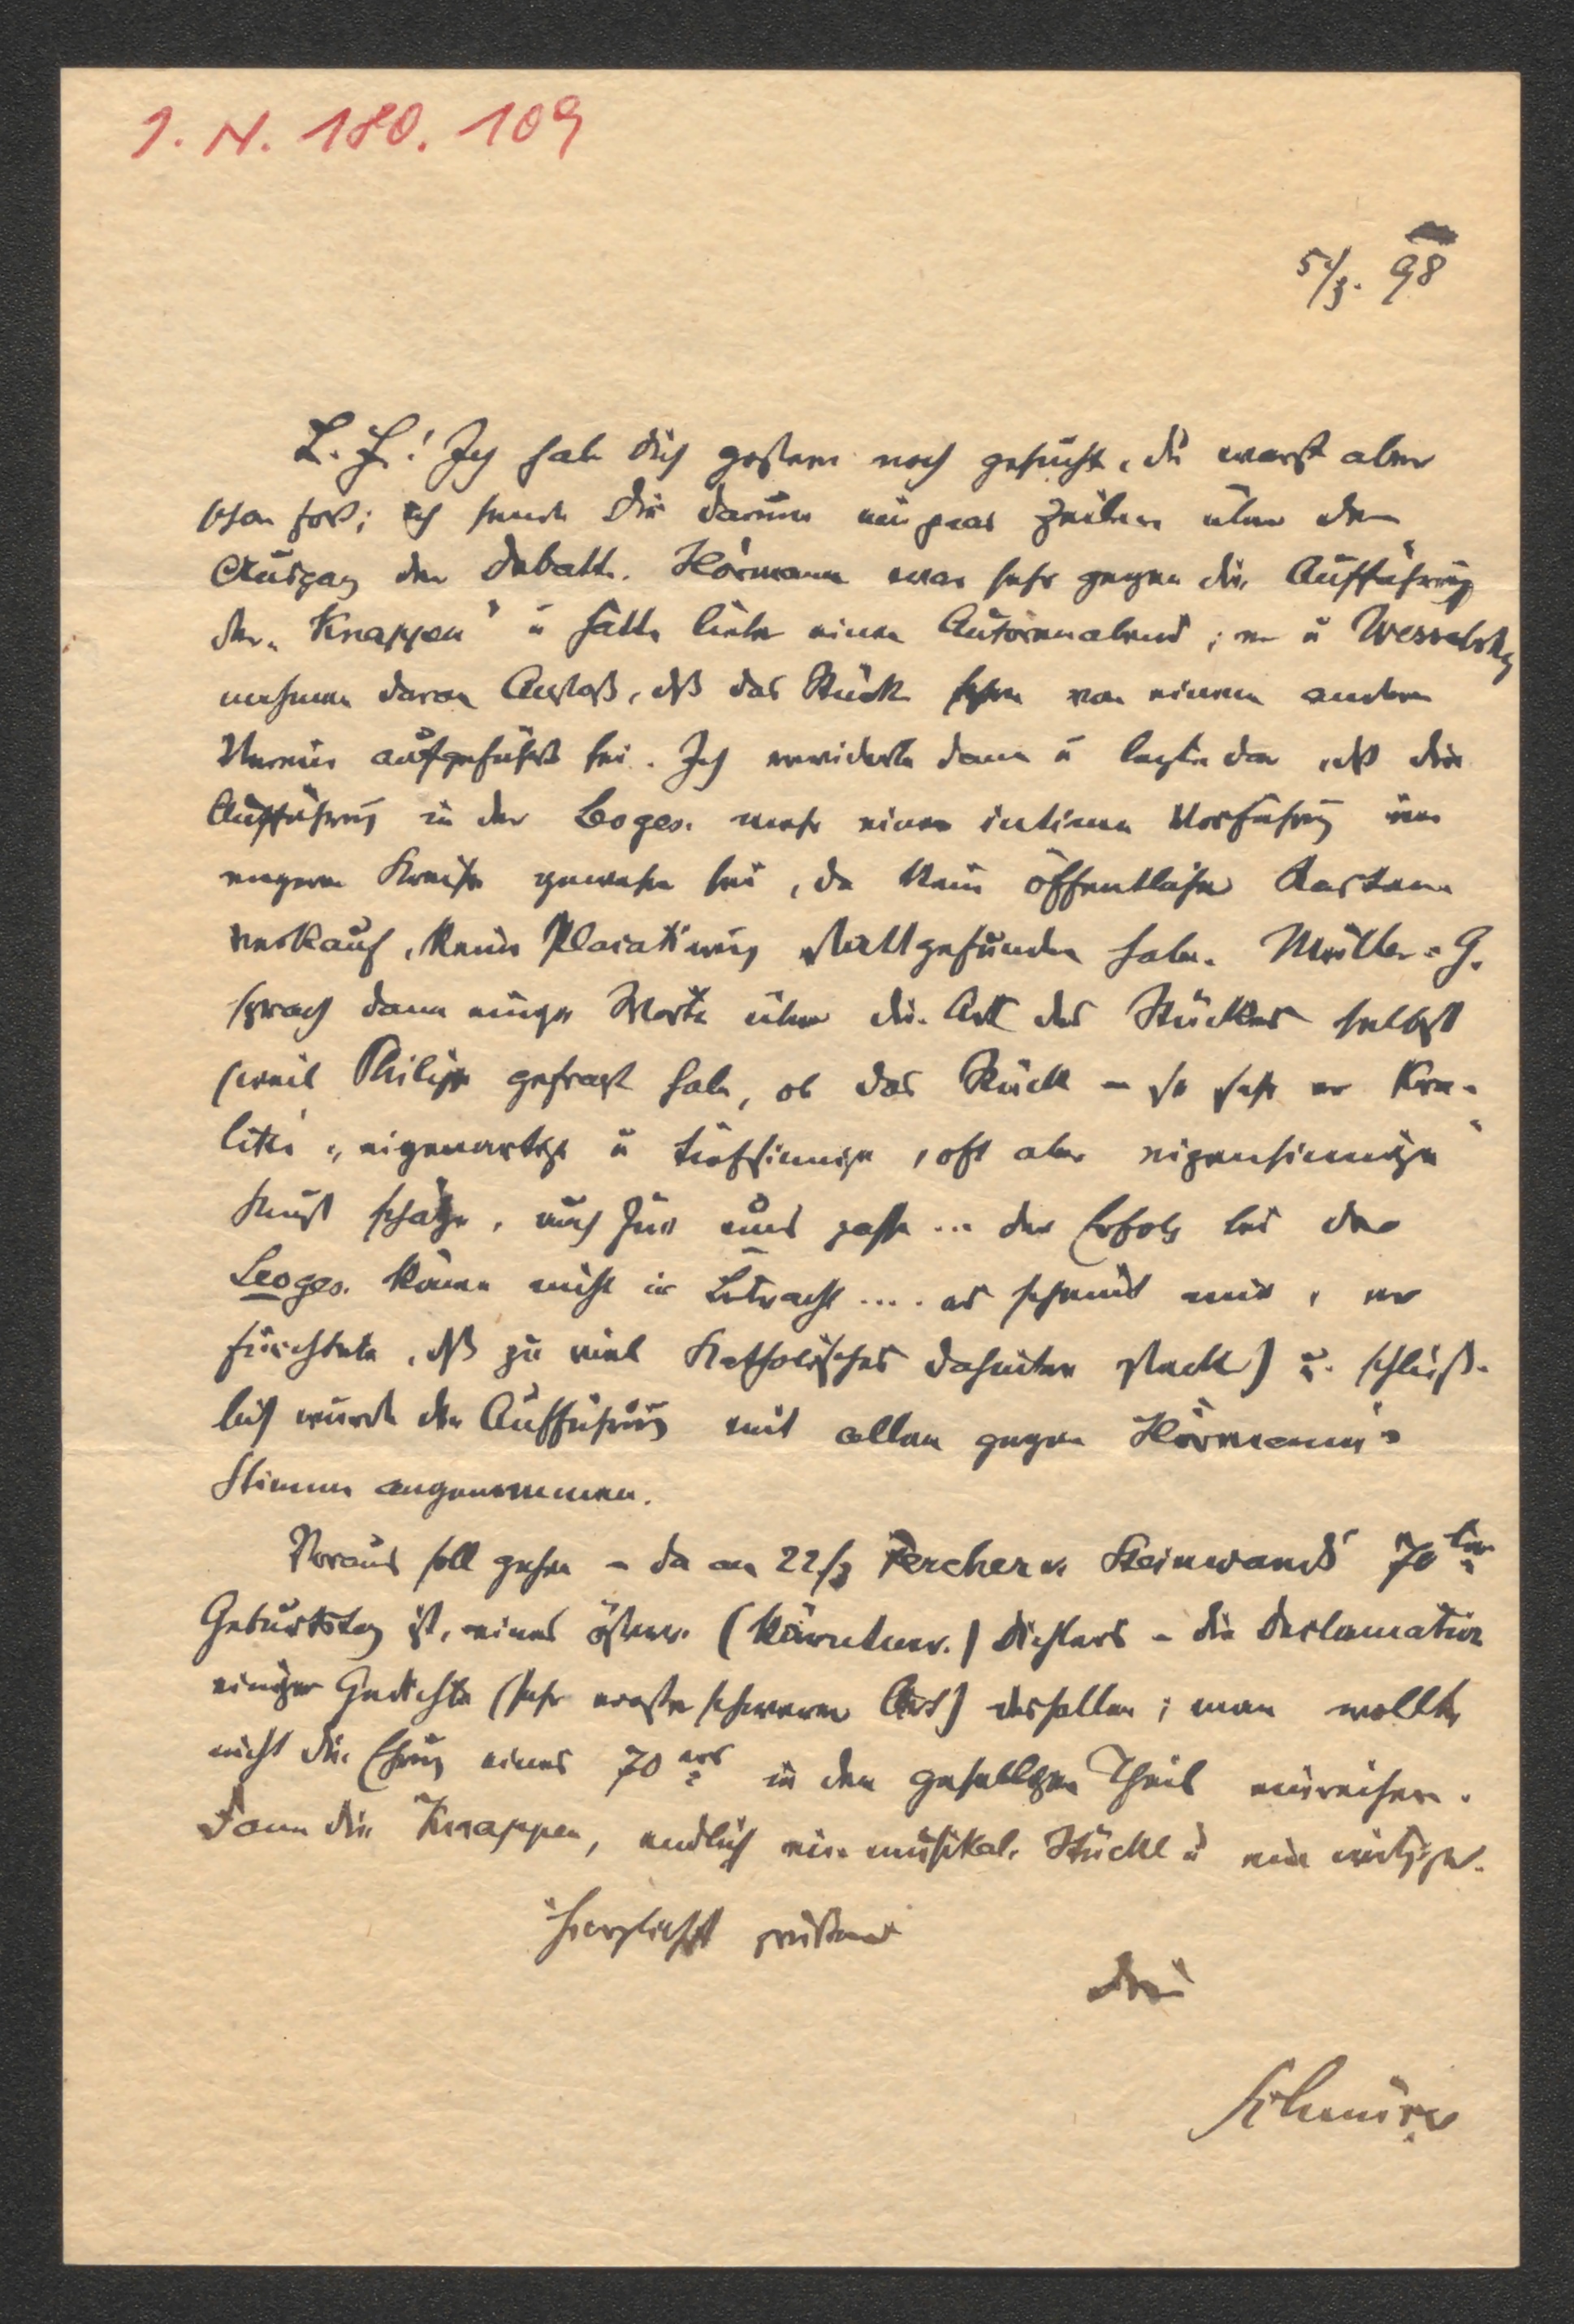 I. N. 180.109
5/3. 98
L. F.! Ich habe dich gestern noch gesucht, du warst aber
schon fort; ich sende Dir darum ein paar Zeilen über den
Ausgang der Debatte. Hörmann war sehr gegen die Aufführung
der „Knappen“ u hätte lieber einen Autorenabend; er u Wesselsky
nehmen daran Anstoß, dß das Stück schon von einem andern
Verein aufgeführt sei. Ich erwiderte dann u legte dar, dß die
Aufführung in der Leoges. mehr einer intimen Vorführung im
engeren Kreise gewesen sei, da kein öffentlicher Karten-
verkauf, keine Placatirung stattgefunden habe. Müller-G.
sprach dann einige Worte über die Art des Stückes selbst
(weil Philipp gefragt habe, ob das Stück – so sehr er Kra-
liks „eigenartige u tiefsinnige, oft aber eigensinnige“
Kunst schätze, auch für uns passe ... der Erfolg bei der
Leoges. käme nicht in Betracht .... es scheint mir, er
fürchtete, dß zu viel Katholisches dahinter steckt) u. schließ-
lich wurde die Aufführung mit allen gegen Hörmann's
Stimme angenommen.
Voraus soll gehen – da am 22/3 Fercher v. Steinwands 70ter
Geburtstag ist, eines österr. (kärntner.) Dichters – die Declamation
einiger Gedichte (sehr ernster schwerer Art) desselben; man wollte
nicht die Ehrung eines 70ers in den geselligen Theil einreihen.
Dann die Knappen, endlich ein musikal. Stückl u ein witziges.
Herzlichst grüßend
Dein
Schnürer